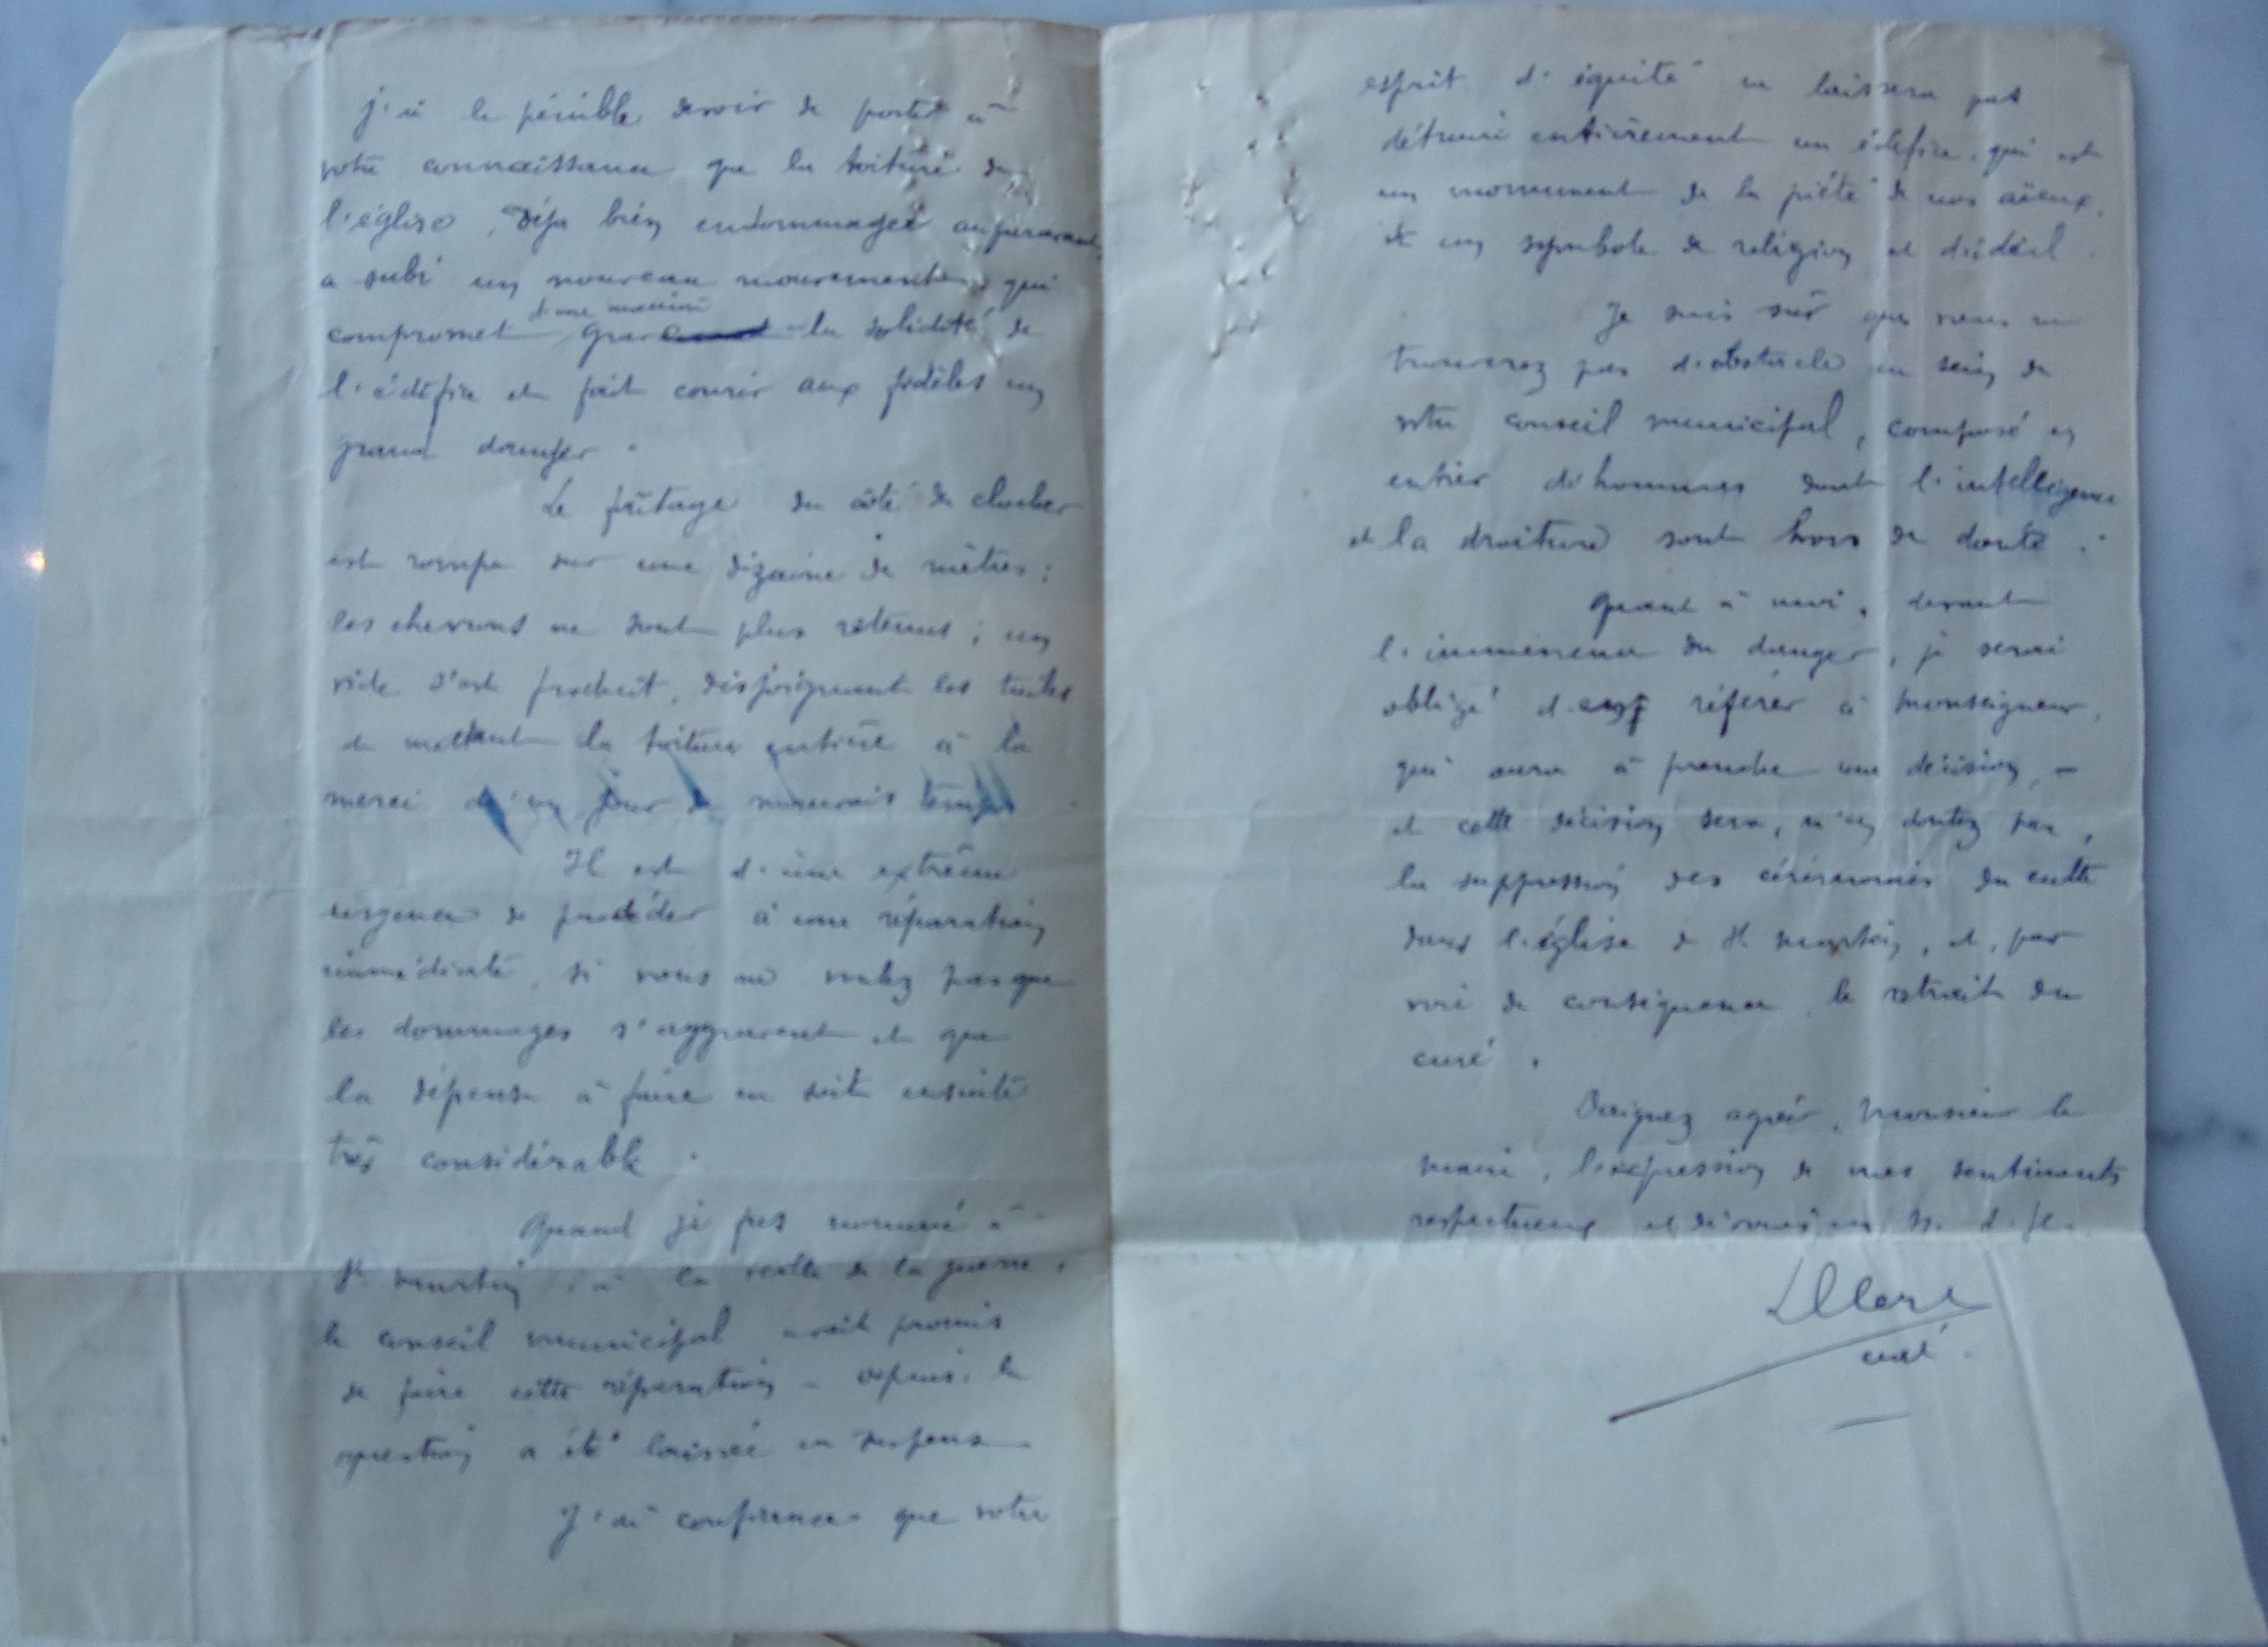 j'ai le pénible devoir de porter à
votre connaissance que la toiture de
l'église, déjà bien endommagée auparavant,
a subi un nouveau mouvement qui
d'une manière
compromet grave la solidité de
l'édifice et fait courir aux fidèles un
grand danger.
Le faîtage du côté du clocher
est rompu sur une dizaine de mètres ;
les chevrons ne sont plus retenus ; un
vide s'est produit, disjoignant les tuiles
et mettant la toiture entière à la
merci d'un jour de mauvais temps.
Il est d'une extrême
urgence de procéder à une réparation
immédiate, si vous ne voulez pas que
les dommages s'aggravent et que
la dépense à faire en soit ensuite
très considérable.
Quand je fus nommé à
St Martin, à la veille de la guerre,
le conseil municipal avait promis
de faire cette réparation - depuis, la
question a été laissée en suspens
J'ai confiance que votre
esprit d'équité ne laissera pas
détruire entièrement un édifice, qui est
un monument de la piété de nos aïeux,
et un symbole de religion et d'idéal.
Je suis sûr que vous ne
trouverez pas d'obstacle au sein de
votre conseil municipal, composé en
entier d'hommes dont l'intelligence
et la droiture sont hors de doute.
Quant à moi, devant
l'imminence du danger, je serai
obligé d'en référer à Monseigneur,
qui aura à prendre une décision, -
et cette décision sera, n'en doutez pas,
la suppression des cérémonies du culte
dans l'église de St Martin, et, par
voie de conséquence, le retrait du
curé.
Daignez agréer, Monsieur le
Maire, l'expression de mes sentiments
respectueux et dévoués en N. S. J. C.
curé.